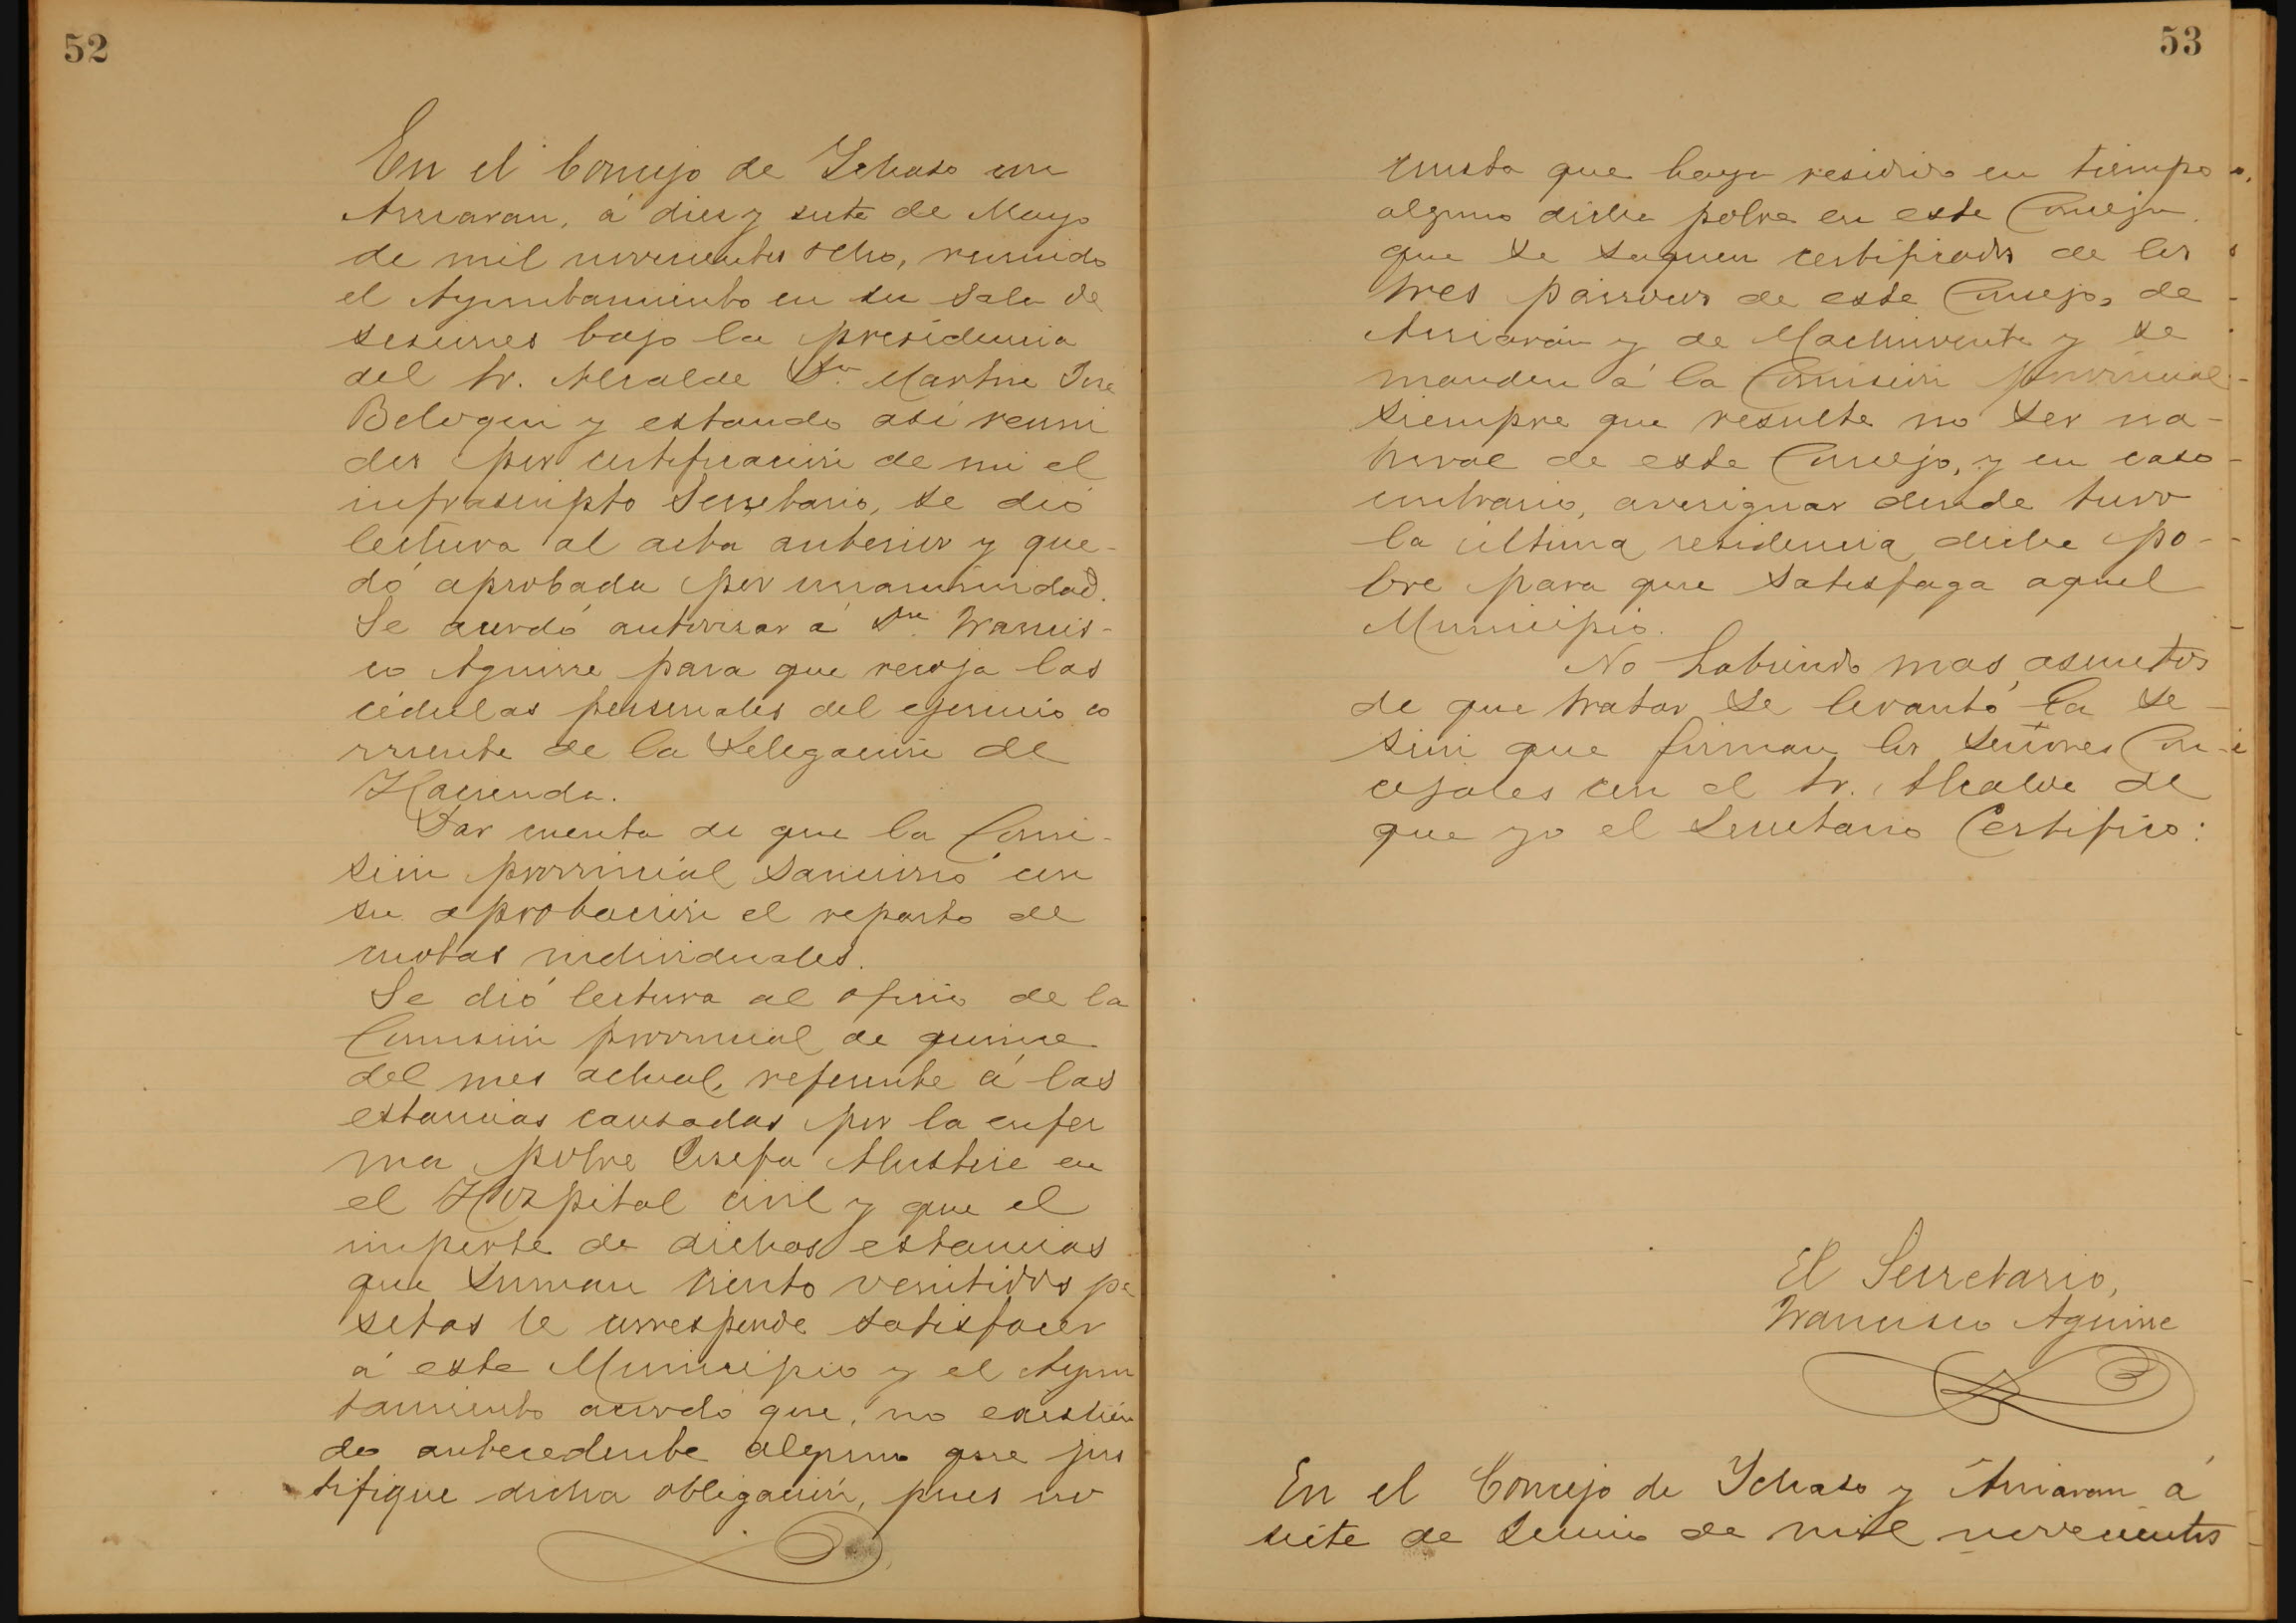 52
En el Concejo de Ichaso con
Arriaran, á diez y siete de Mayo
de mil novecientos ocho, reunido
el Ayuntamiento en su Sala de
sesiones bajo la presidencia
del Sr. Alcalde Dn. Martin José
Beloqui y estando asi reuni
dos por certificación de mi el
infrascripto Secretario, se dió
lectura al acta anterior y que-
dó aprobada por unanimidad.
Se acordó autorizar á Dn. Francis-
co Aguirre para que recoja las
cédulas personales del ejercicio co
rriente de la Delegación de
Hacienda.
Dar cuenta de que la Comi-
sión provincial sancionó con
su aprobación el reparto de
cuotas individuales.
Se dió lectura al oficio de la
Comisión provincial de quince
del mes actual, referente á las
estancias causadas por la enfer
ma pobre Josefa Alustise en
el Hospital civil y que el
importe de dichas estancias
que suman ciento veintidos pe
setas le corresponde satisfacer
á este Municipio y el Ayun
tamiento acordó que, no existien
do antecedente alguno que jus
tifique dicha obligación, pues no
53
consta que haya residido en tiempo
alguno dicha pobre en este Concejo.
que se saquen certificados de los
tres párrocos de este Concejo, de
Arriarán y de Machinventa y se
manden á la Comisión provincial
siempre que resulte no ser na-
tural de este Concejo, y en caso
contrario, averiguar donde tuvo
la última residencia dicha po-
bre para que satisfaga aquel
Municipio.
No habiendo mas asuntos
de que tratar se levantó la se-
sión que firman los Señores Con-
cejales con el Sr. Alcalde de
que yo el Secretario Certifico:
El Secretario,
Francisco Aguirre
En el Concejo de Ichaso y Arriaran á
siete de Junio de mil novecientos